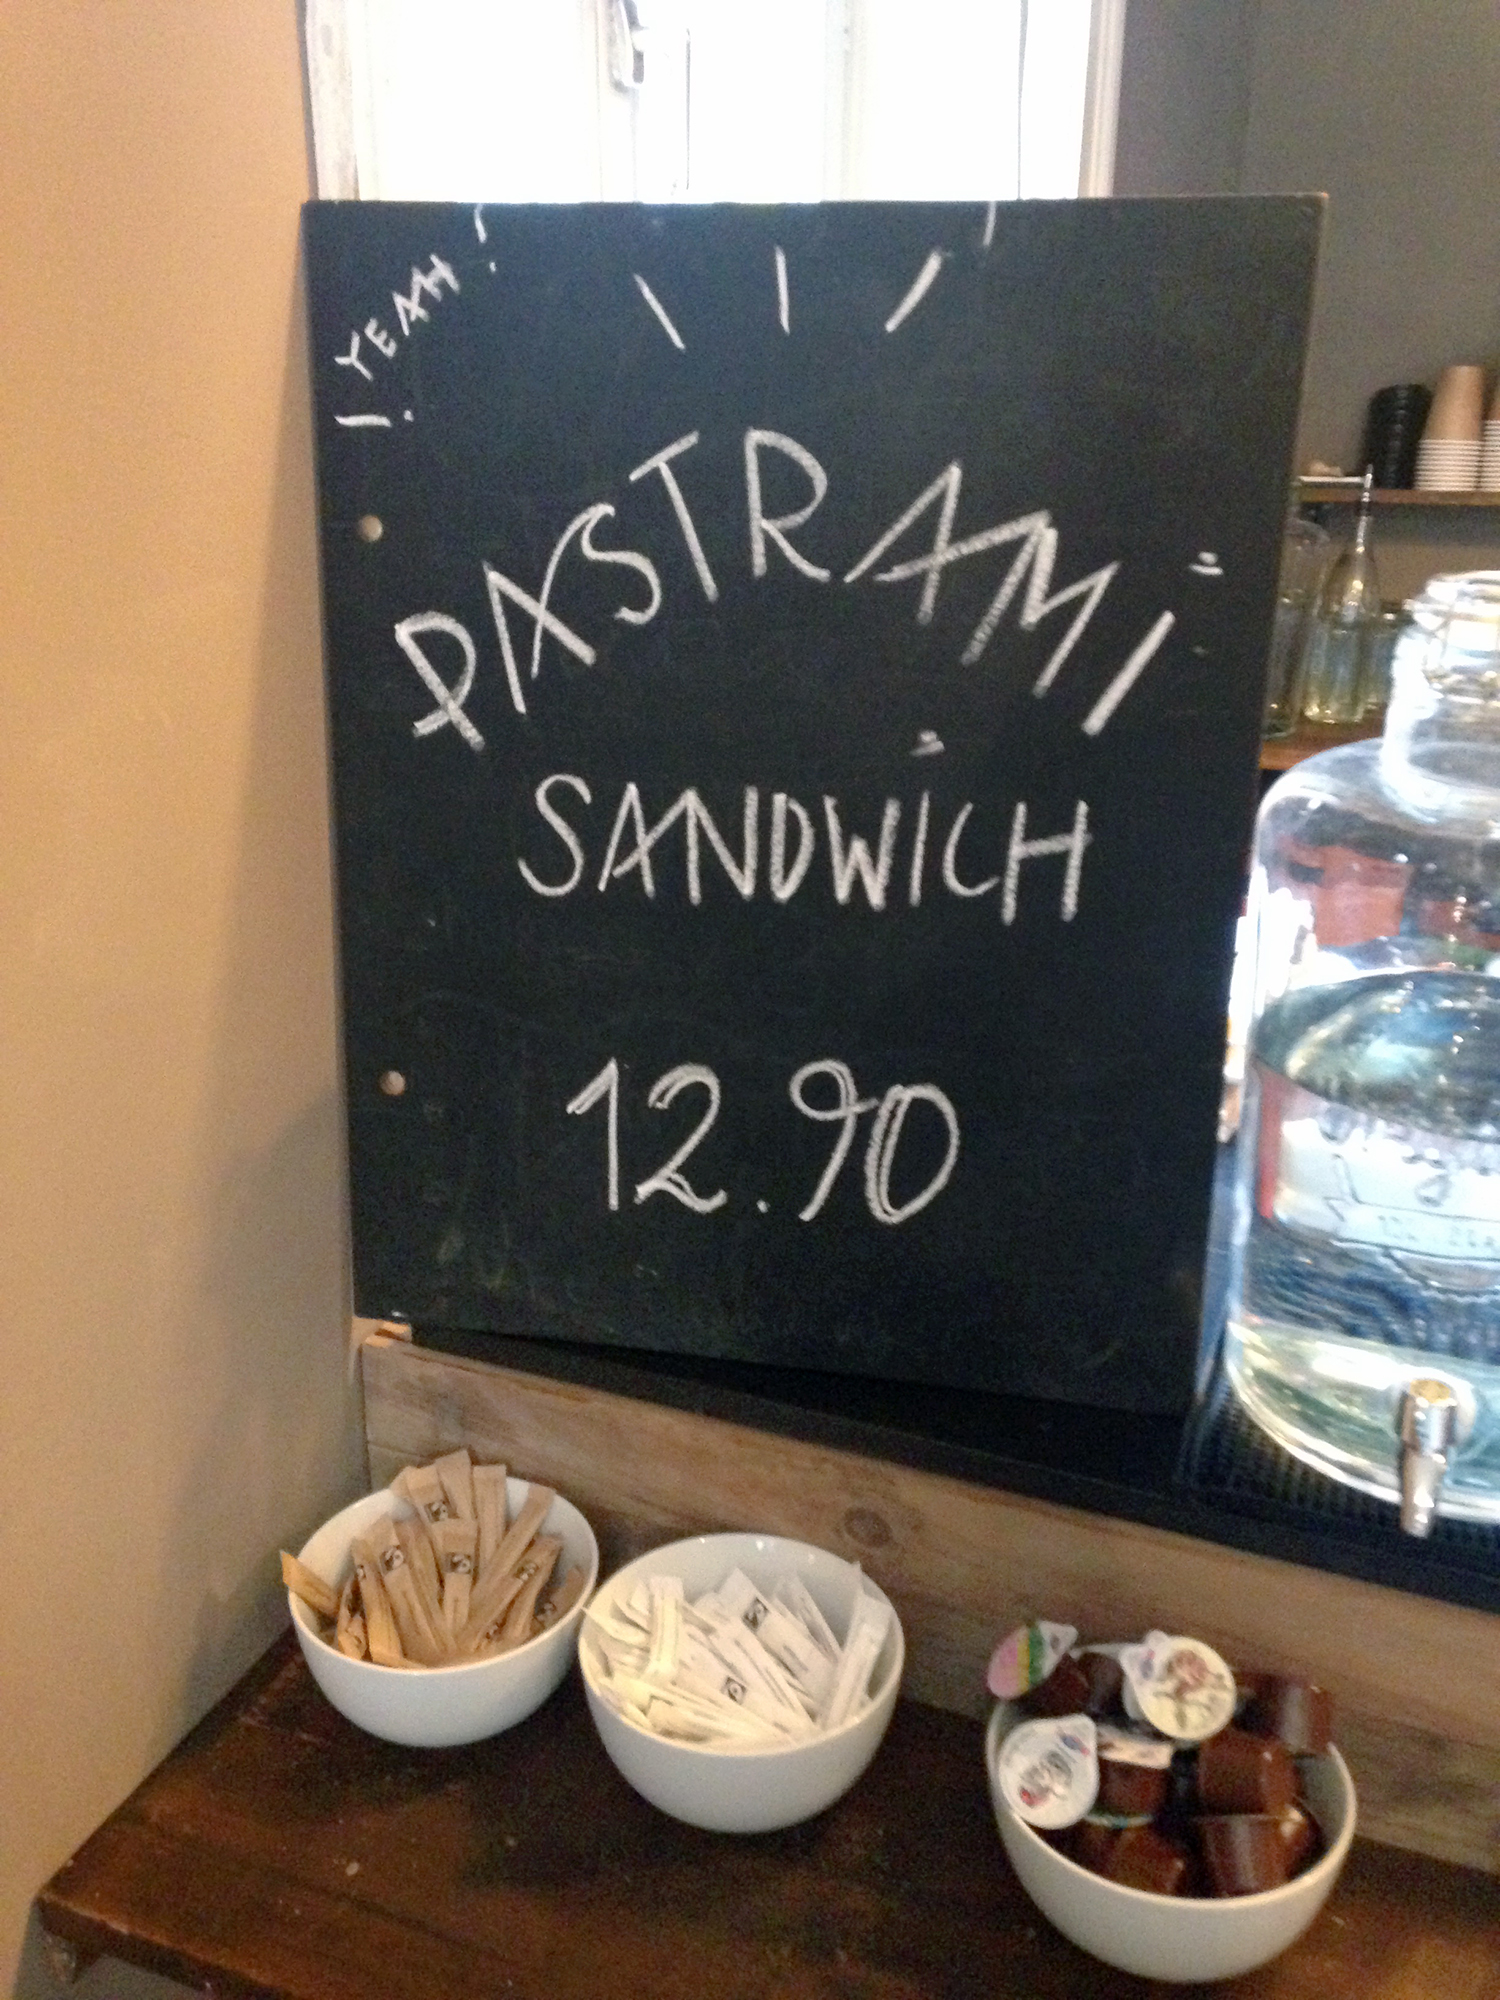 ! YEAH !
PASTRAMI
SANDWICH
12.90